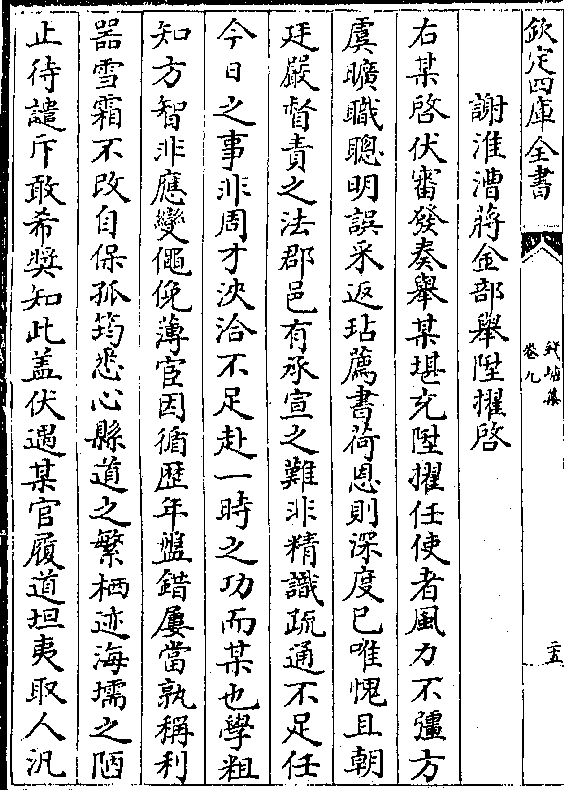 欽定四庫全書
卷九
二十五
謝淮漕蔣金部舉陞擢啓
右某啓伏審發奏舉某堪充陞擢任使者風力不彊方
虞曠職聰明誤采返玷薦書荷恩則深度已唯愧且朝
廷嚴督責之法郡邑有承宣之難非精識疏通不足任
今日之事非周才浹洽不足赴一時之功而某也學粗
知方智非應變僶俛薄宦因循歴年盤錯屢當孰稱利
器雪霜不改自保孤筠悉心縣道之繁栖迹海壖之陋
止待譴斥敢希奬知此盖伏遇某官履道坦夷取人汎